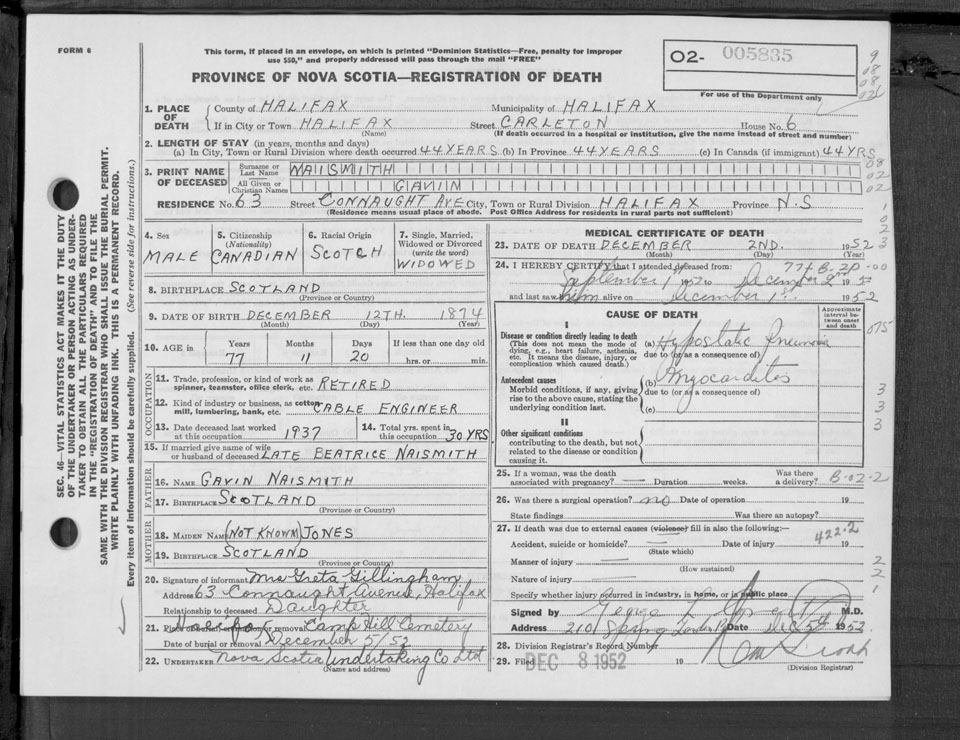 FORM 6
This form, if placed in an envelope, on which is printed "Dominion Statistics—Free, penalty for improper
use $50," and properly addressed will pass through the mail "FREE"
PROVINCE OF NOVA SCOTIA—REGISTRATION OF DEATH
02- 005835
For use of the Department only
9
08
08
02
1. PLACE OF DEATH
County of HALIFAX Municipality of HALIFAX
If in City or Town HALIFAX Street CARLETON House No. 6
(Name) (If death occurred in a hospital or institution, give the name instead of street and number)
2. LENGTH OF STAY (in years, months and days)
(a) In City, Town or Rural Division where death occurred 44 YEARS (b) In Province 44 YEARS (c) In Canada (if immigrant) 44 YRS
3. PRINT NAME OF DECEASED
Surname or Last Name NAISMITH 08
All Given or Christian Names GAVIN 02
RESIDENCE No. 63 Street CONNAUGHT AVE City, Town or Rural Division HALIFAX Province N.S
(Residence means usual place of abode. Post Office Address for residents in rural parts not sufficient)
4. Sex MALE
5. Citizenship (Nationality) CANADIAN
6. Racial Origin SCOTCH
7. Single, Married, Widowed or Divorced (write the word) WIDOWED
8. BIRTHPLACE SCOTLAND
(Province or Country)
9. DATE OF BIRTH DECEMBER 12TH. 1874
(Month) (Day) (Year)
10. AGE in Years Months Days If less than one day old
77 11 20 hrs. or min.
OCCUPATION
11. Trade, profession, or kind of work as
spinner, teamster, office clerk, etc. RETIRED
12. Kind of industry or business, as cotton
mill, lumbering, bank, etc. CABLE ENGINEER
13. Date deceased last worked
at this occupation 1937
14. Total yrs. spent in
this occupation 30 YRS
15. If married give name of wife
or husband of deceased LATE BEATRICE NAISMITH
FATHER
16. NAME GAVIN NAISMITH
17. BIRTHPLACE SCOTLAND
(Province or Country)
MOTHER
18. MAIDEN NAME (NOT KNOWN) JONES
19. BIRTHPLACE SCOTLAND
(Province or Country)
20. Signature of informant Mrs Greta Gillingham
Address 63 Connaught Avenue, Halifax
Relationship to deceased Daughter
21. Place of burial, cremation or removal Halifax Camp Hill Cemetery
Date of burial or removal December 5/52
22. UNDERTAKER Nova Scotia Undertaking Co Ltd
(Name and address)
MEDICAL CERTIFICATE OF DEATH
23. DATE OF DEATH DECEMBER 2ND. 1952
(Month) (Day) (Year)
24. I HEREBY CERTIFY that I attended deceased from:
September 1st 1952 to December 2nd 1952
and last saw him alive on December 1st 1952
CAUSE OF DEATH
Approximate interval between onset and death
I
Disease or condition directly leading to death
(This does not mean the mode of
dying, e.g., heart failure, asthenia,
etc. It means the disease, injury, or
complication which caused death.)
(a) Hypostatic Pneumonia
due to (or as a consequence of)
075
Antecedent causes
Morbid conditions, if any, giving
rise to the above cause, stating the
underlying condition last.
(b) Myocarditis
due to (or as a consequence of)
(c)
3
3
3
II
Other significant conditions
contributing to the death, but not
related to the disease or condition
causing it.
25. If a woman, was the death
associated with pregnancy? — Duration weeks. Was there
a delivery? B-02-2
26. Was there a surgical operation? no Date of operation 19
State findings Was there an autopsy?
27. If death was due to external causes (violence) fill in also the following:—
422.2
Accident, suicide or homicide? — Date of injury 19
(State which)
Manner of injury
(How sustained)
Nature of injury
Specify whether injury occurred in industry, in home, or in public place
Signed by M.D.
Address 210 Spring Garden Rd Date 1952
28. Division Registrar's Record Number
29. Filed DEC 8 1952 19
(Division Registrar)
SEC. 46—VITAL STATISTICS ACT MAKES IT THE DUTY
OF THE UNDERTAKER OR PERSON ACTING AS UNDER-
TAKER TO OBTAIN ALL THE PARTICULARS REQUIRED
IN THE "REGISTRATION OF DEATH" AND TO FILE THE
SAME WITH THE DIVISION REGISTRAR WHO SHALL ISSUE THE BURIAL PERMIT.
WRITE PLAINLY WITH UNFADING INK. THIS IS A PERMANENT RECORD.
Every item of information should be carefully supplied. (See reverse side for instructions.)